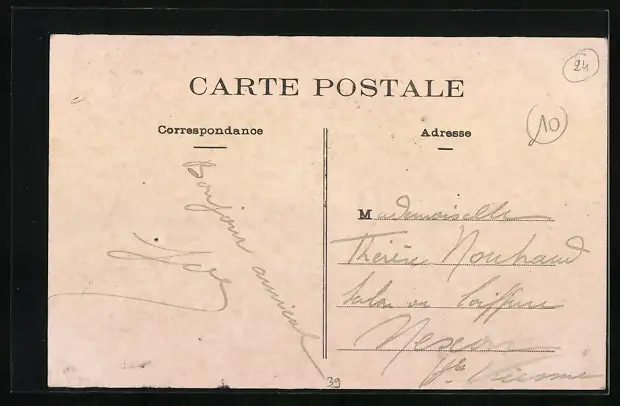 24
CARTE POSTALE
10
Correspondance
Adresse
Bonjour amical
Mademoiselle
Thérèse Nouhaud
Salon de Coiffure
Nexon
Hte Vienne
39